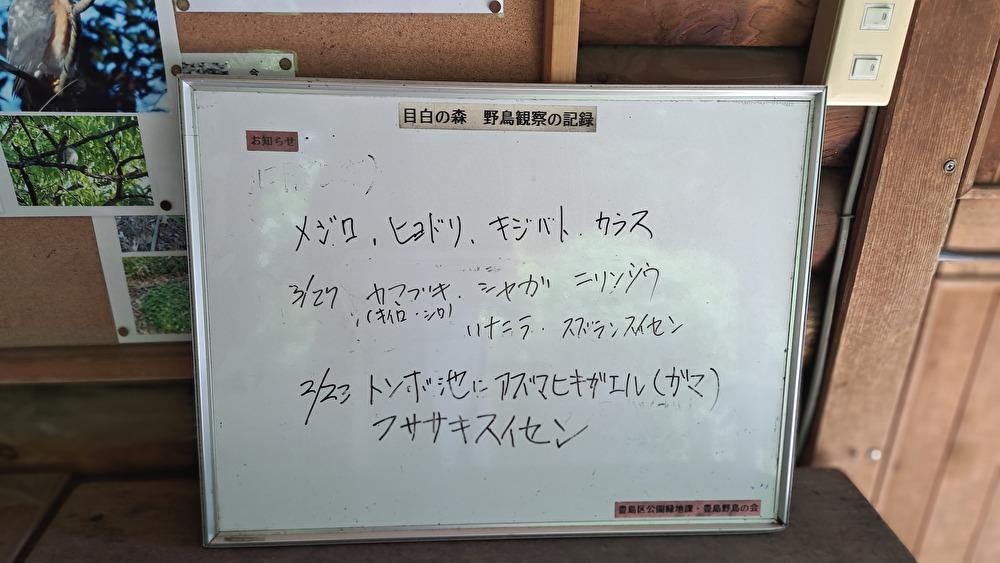 目白の森 野鳥観察の記録
お知らせ
メジロ、ヒヨドリ、キジバト、カラス
3/27 ヤマブキ、シャガ ニリンソウ
(キイロ・シロ)
ハナニラ・スズランスイセン
2/23 トンボ池にアズマヒキガエル(ガマ)
フササキスイセン
豊島区公園緑地課・豊島野鳥の会